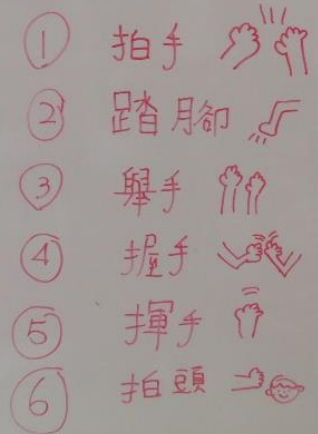 ① 拍手
② 踏腳
③ 舉手
④ 握手
⑤ 揮手
⑥ 拍頭